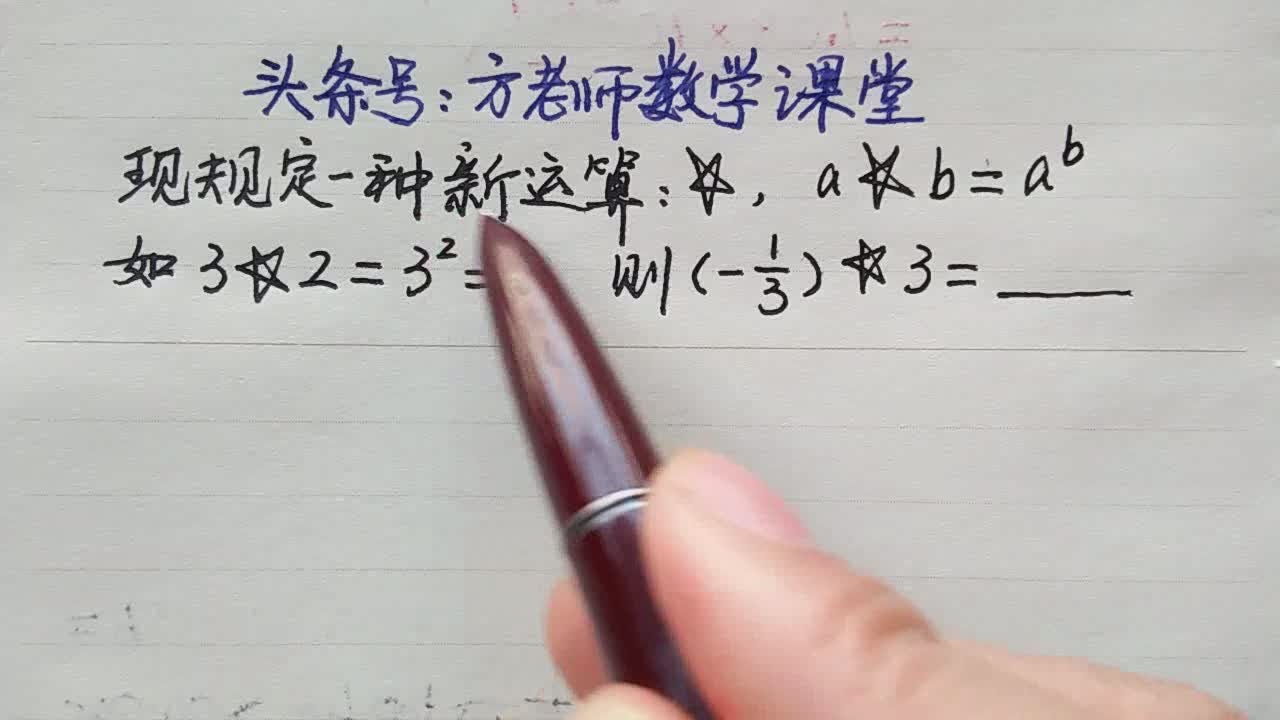 头条号:方老师数学课堂
现规定一种新运算:☆, a☆b=a^b
如 3☆2=3²= 则(-1/3)☆3=____